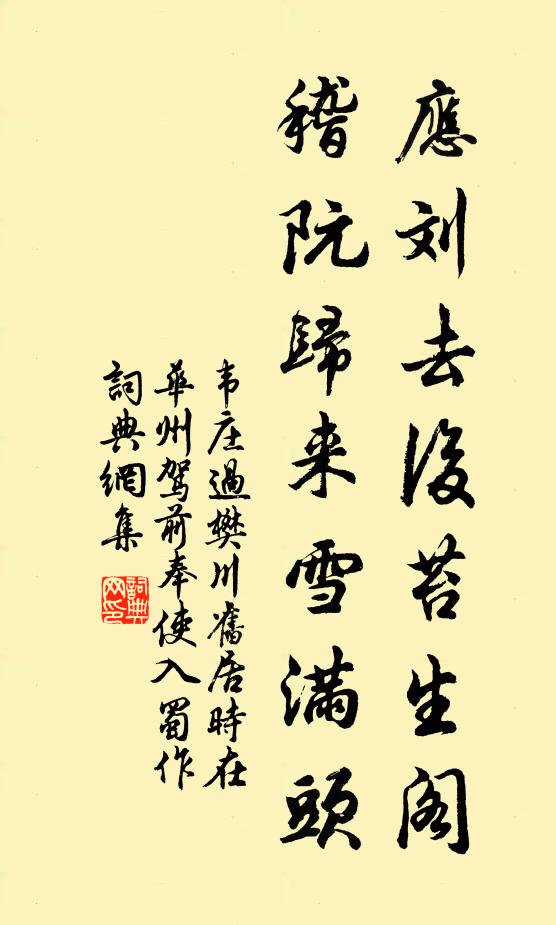 應刘去後苔生阁
稽阮歸来雪满頭
韦庄過樊川舊居時在
華州驾前奉使入蜀作
詞典網集
詞典網印